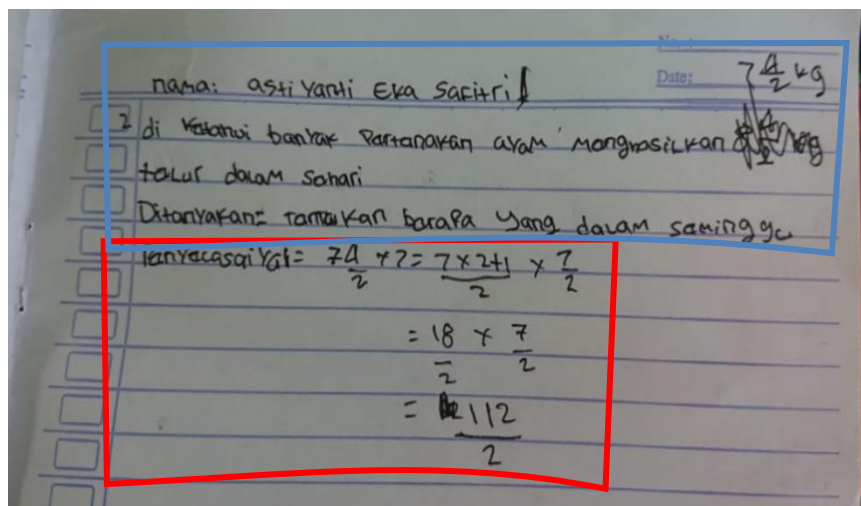 No.:
Date:
7 4/2 kg
nama: asti Yanti Eka Safitri
2 di Katahui banyak Partanakan ayam menghasilkan
talur dalam sahari
Ditanyakan= tamukan barapa yang dalam saminggu
Panyalasaiyan= 7 4/2 × 7 = 7×2+1/2 × 7/2
= 18/2 × 7/2
= 112/2